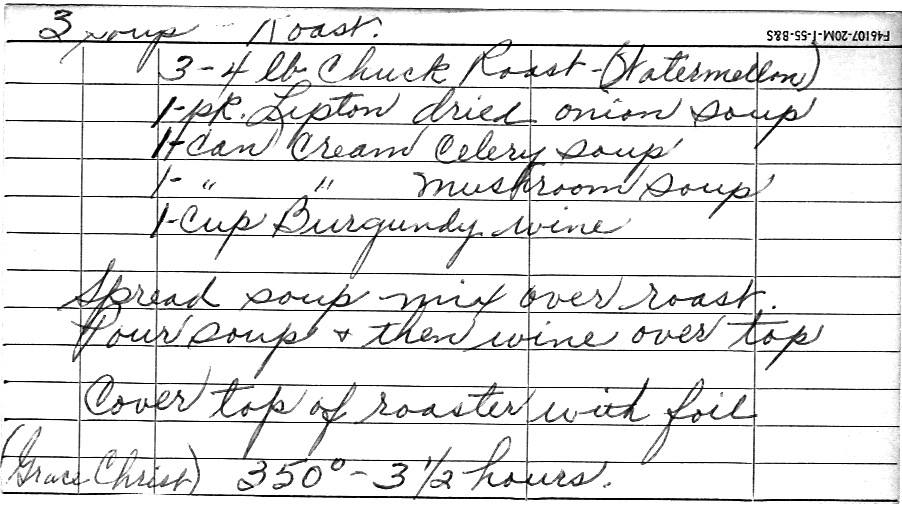 3 soup - Roast.
F46107-20M-1-55-B&S
3-4 lb Chuck Roast-(Watermellon)
1-pk. Lipton dried onion soup
1-can Cream Celery soup
1- " " mushroom soup
1-cup Burgundy wine
Spread soup mix over roast.
Pour soup & then wine over top
Cover top of roaster with foil
(Grace Christ) 350° - 3 1/2 hours.